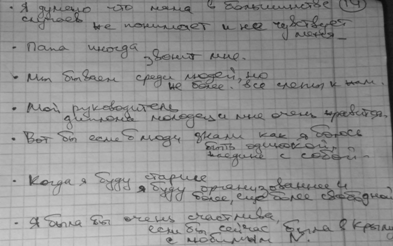 • Я думаю что мама в большинстве (14)
случаев не понимает и не чувствует
меня
• Папа иногда
звонит мне.
• Мы бываем среди людей, но
не более. все
• Мой руководитель
диплома молодец и мне очень нравится.
• Вот бы если б люди знали как я боюсь
быть одинокой
наедине с собой
• Когда я буду старше
я буду организованнее и
более, еще более свободной
• Я была бы очень счастлива,
если бы сейчас была в Крыму
с любимым N.